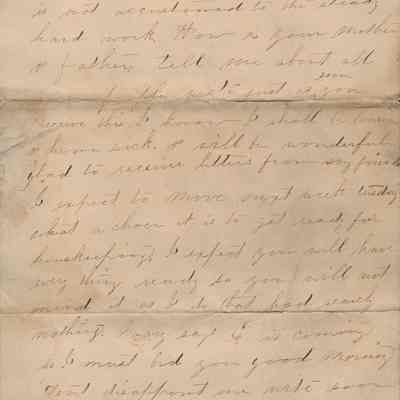 is not accustomed to the steady
hard work How is your Mother
& father, tell me about all
write just as soon you
receive this I know I shall be lonesome
& home sick. & will be wonderful
glad to receive letters from my friends
I expect to move next week tuesday
what a chore it is to get ready for
housekeeping, I expect you will have
every thing ready so you will not
mind it as I do that had nearly
nothing. say is coming
so I must bid you good morning
Dont disappoint me write soon